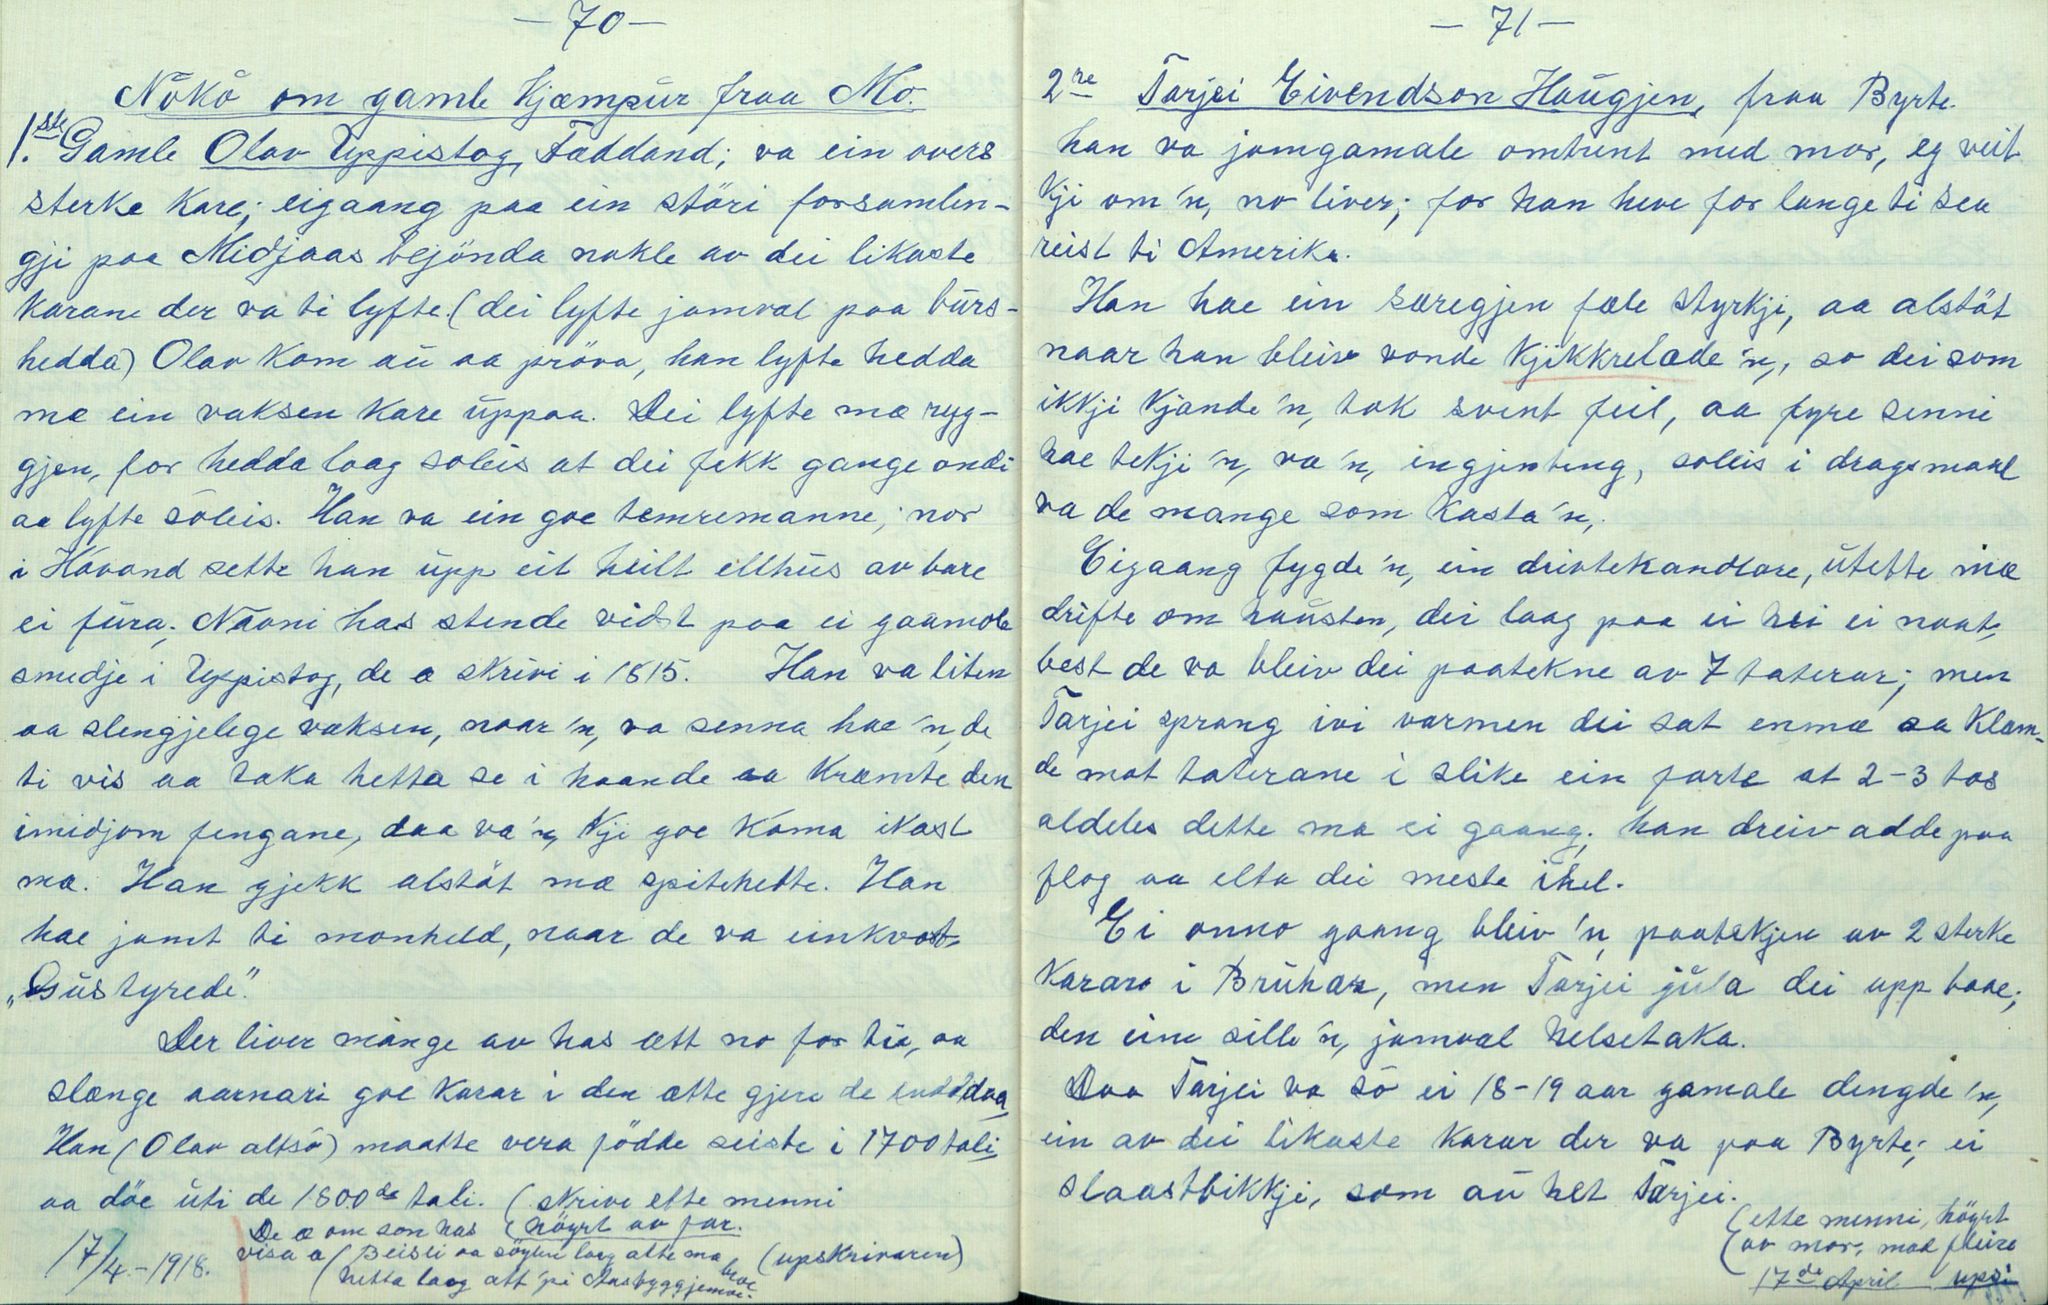 — 70 —
Nökö om gamle Kjæmpur fraa Mo.
1.ste Gamle Olav Uppistog, Fæddand; va ein overs
sterke kare; eigaang paa ein störi forsamlin-
gji paa Midjaas bejönda nokle av dei likaste
karane der va ti lyfte. (dei lyfte jamval paa burs-
hedda) Olav kom au aa pröva, han lyfte hedda
mæ ein vaksen kare uppaa. Dei lyfte mæ ryg-
gjen, for hedda laag soleis at dei fekk gange ondi
aa lyfte söleis. Han va ein goe temremanne; nor
i Havand sette han upp eit heilt ellhus av bare
ei fura; Navni has stende vidst paa ei gaamole
smedje i Uppistog, de æ skrivi i 1815. Han va liten
aa slengjelege vaksen, naar 'n, va senna hae 'n, de
ti vis aa taka hetta se i haande aa kræmte den
imidjom fengane, daa va 'n, kji goe koma ikast
mæ. Han gjekk alstöt mæ spitehette. Han
hae jamt ti monheld, naar de va einkvart
„Gustyrede".
Der liver mange av has ætt no for tie, aa
slænge aarnari goe karar i den ætte gjere de endd daa,
Han (Olav altsö) maatte vera födde seiste i 1700 tali,
aa döe uti de 1800de tali. (skrive ette menni
De æ om son has (höyrt av far.
17/4.-1918. visa æ (Beisli aa söylen laag atte mæ (upskrivaren)
(hetta laag att 'pi Aasbyggjemoe.
— 71 —
2re Tarjei Eivendson Haugjen, fraa Byrte.
han va jamgamale omtrent med mor, eg veit
kji om 'n, no liver; for han heve for lange ti sea
reist ti Amerika.
Han hae ein særegjen fæle styrkji, aa alstöt
naar han bleiv vonde kjikkrelæde 'n,, so dei som
ikkji kjande 'n, tok svent feil, aa fyre senni
hae tekji 'n, va 'n, ingjenteng, soleis i dragsmaal
va de mange som kasta 'n,.
Eigaang fygde 'n, ein drivtekandlare, utette mæ
drifte om hausten, dei laag paa ei hei ei naat,
best de va bleiv dei paatekne av 7 taterar; men
Tarjei sprang ivi varmen dei sat enmæ aa klam-
de mot taterane i slike ein farte at 2-3 tas
aldeles dette mæ ei gaang; han dreiv adde paa
flog aa elta dei meste ihel.
Ei onno gaang bleiv 'n, paatekjen av 2 sterke
karar i Bruhar, men Tarjei jula dei upp baae;
den eine sille 'n, jamval helsetaka.
Daa Tarjei va so ei 18-19 aar gamale dengde 'n,
ein av dei likaste karar der va paa Byrte; ei
slaastbikkji, som au het Tarjei.
(ette menni, höyrt
(av mor, mod fleire
17de April